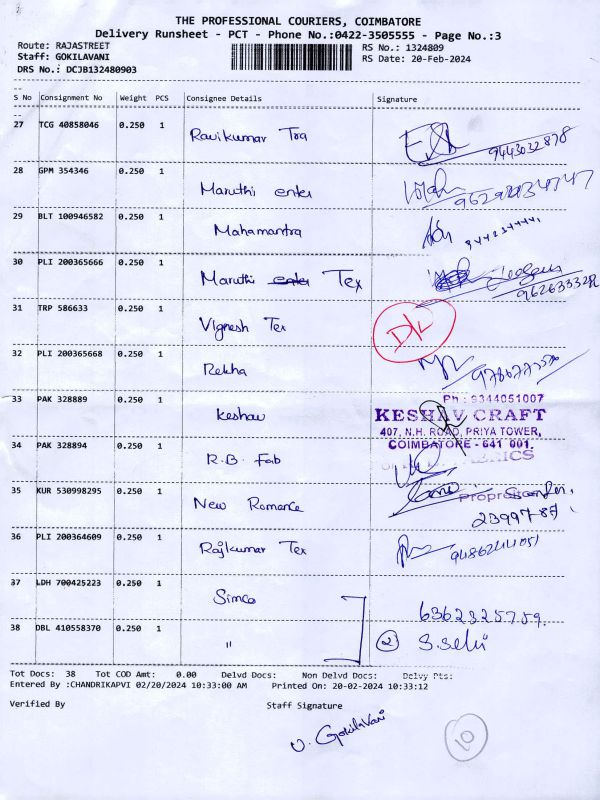 THE PROFESSIONAL COURIERS, COIMBATORE
Delivery Runsheet - PCT - Phone No.:0422-3505555 - Page No.:3
Route: RAJASTREET RS No.: 1324809
Staff: GOKILAVANI RS Date: 20-Feb-2024
DRS No.: DCJB132480903
S No Consignment No Weight PCS Consignee Details Signature
27 TCG 40858046 0.250 1 Ravikumar Tra
9443032878
28 GPM 354346 0.250 1 Maruthi enter
29 BLT 100946582 0.250 1 Mahamantra
30 PLI 200365666 0.250 1 Maruthi enter Tex
31 TRP 586633 0.250 1 Vignesh Tex D/L
32 PLI 200365668 0.250 1 Rekha
33 PAK 328889 0.250 1 Keshav
Ph : 9344051007
KESHAV CRAFT
407, N.H. ROAD, PRIYA TOWER,
COIMBATORE - 641 001.
34 PAK 328894 0.250 1 R.B. Fab
35 KUR 530998295 0.250 1 New Romance
36 PLI 200364609 0.250 1 Rajkumar Tex
37 LDH 700425223 0.250 1 Simco
6362325759.
38 DBL 410558370 0.250 1 " 2 S.Selvi
Tot Docs: 38 Tot COD Amt: 0.00 Delvd Docs: Non Delvd Docs: Delvy Pts:
Entered By :CHANDRIKAPVI 02/20/2024 10:33:00 AM Printed On: 20-02-2024 10:33:12
Verified By Staff Signature
V. Gokilavani
10